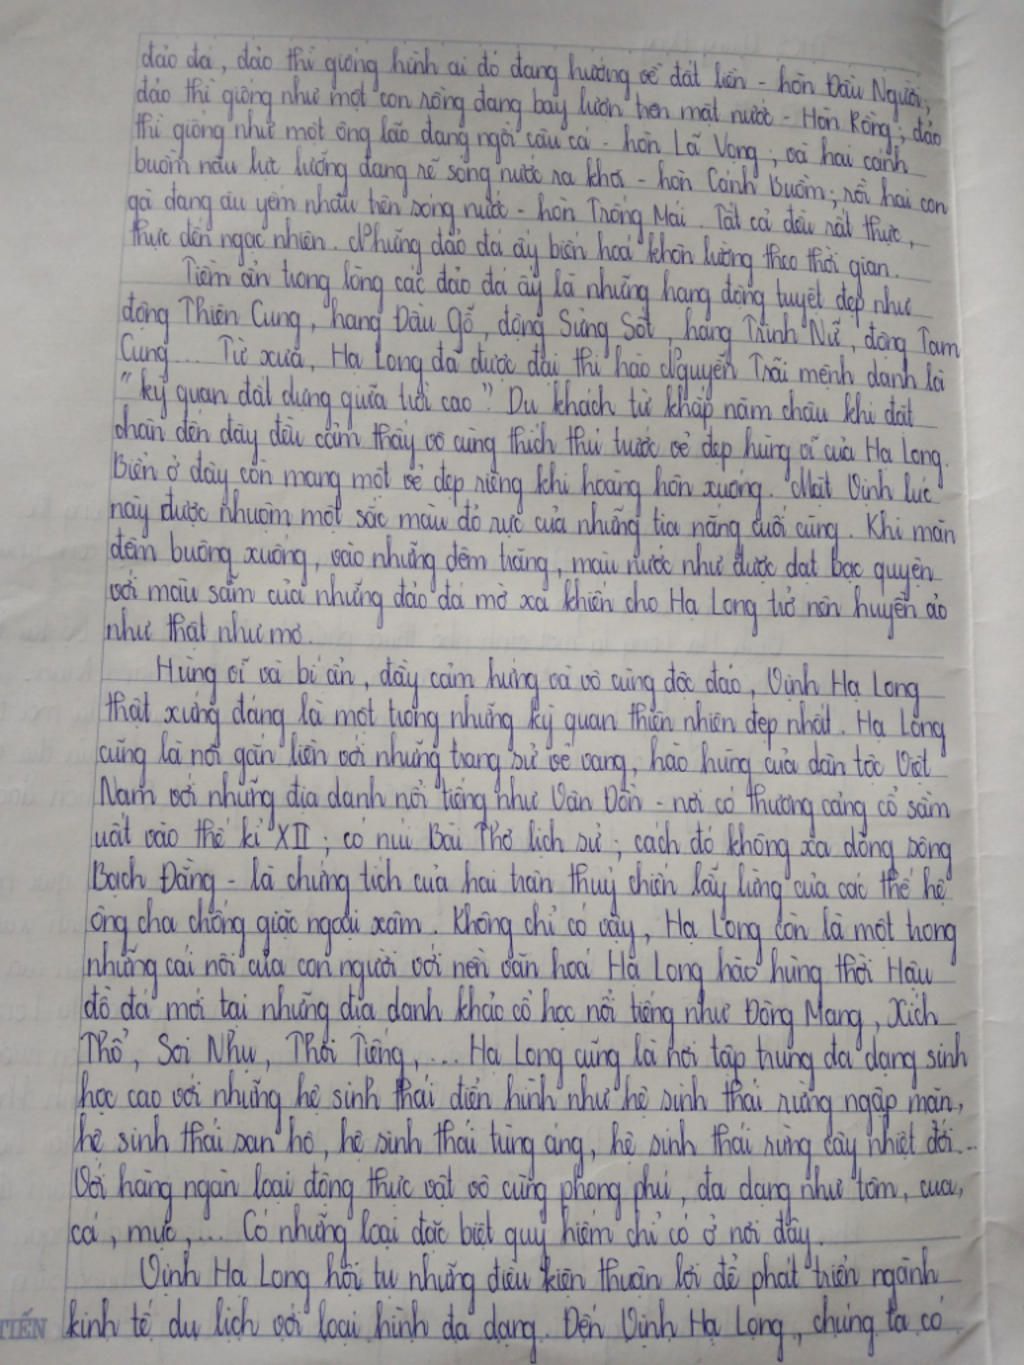 đảo đá, đảo thì giống hình ai đó đang hướng về đất liền - hòn Đầu Người;
đảo thì giống như một con rồng đang bay lượn trên mặt nước - Hòn Rồng; đảo
thì giống như một ông lão đang ngồi câu cá - hòn Lã Vọng; và hai cánh
buồm nâu lực lưỡng đang rẽ sóng nước ra khơi - hòn Cánh Buồm; rồi hai con
gà đang âu yếm nhau trên sóng nước - hòn Trống Mái. Tất cả đều rất thực,
thực đến ngạc nhiên. Những đảo đá ấy biến hoá khôn lường theo thời gian.
Tiềm ẩn trong lòng các đảo đá ấy là những hang động tuyệt đẹp như
động Thiên Cung, hang Đầu Gỗ, động Sửng Sốt, hang Trinh Nữ, động Tam
Cung... Từ xưa, Hạ Long đã được đại thi hào Nguyễn Trãi mệnh danh là
"kỳ quan đất dựng giữa trời cao". Du khách từ khắp năm châu khi đặt
chân đến đây đều cảm thấy vô cùng thích thú trước vẻ đẹp hùng vĩ của Hạ Long.
Biển ở đây còn mang một vẻ đẹp riêng khi hoàng hôn xuống. Mặt Vịnh lúc
này được nhuộm một sắc màu đỏ rực của những tia nắng cuối cùng. Khi màn
đêm buông xuống, vào những đêm trăng, màu nước như được dát bạc quyện
với màu sẫm của những đảo đá mờ xa khiến cho Hạ Long trở nên huyền ảo
như thật như mơ.
Hùng vĩ và bí ẩn, đầy cảm hứng và vô cùng độc đáo, Vịnh Hạ Long
thật xứng đáng là một trong những kỳ quan thiên nhiên đẹp nhất. Hạ Long
cũng là nơi gắn liền với những trang sử vẻ vang, hào hùng của dân tộc Việt
Nam với những địa danh nổi tiếng như Vân Đồn - nơi có thương cảng cổ sầm
uất vào thế kỉ XII; có núi Bài Thơ lịch sử; cách đó không xa dòng sông
Bạch Đằng - là chứng tích của hai trận thuỷ chiến lẫy lừng của các thế hệ
ông cha chống giặc ngoại xâm. Không chỉ có vậy, Hạ Long còn là một trong
những cái nôi của con người với nền văn hoá Hạ Long hào hùng thời Hậu
đồ đá mới tại những địa danh khảo cổ học nổi tiếng như Đồng Mang, Xích
Thổ, Soi Nhụ, Thoi Tiếng,... Hạ Long cũng là nơi tập trung đa dạng sinh
học cao với những hệ sinh thái điển hình như hệ sinh thái rừng ngập mặn,
hệ sinh thái san hô, hệ sinh thái tùng áng, hệ sinh thái rừng cây nhiệt đới...
Với hàng ngàn loại động thực vật vô cùng phong phú, đa dạng như tôm, cua,
cá, mực,... Có những loại đặc biệt quý hiếm chỉ có ở nơi đây.
Vịnh Hạ Long hội tụ những điều kiện thuận lợi để phát triển ngành
TIẾN kinh tế du lịch với loại hình đa dạng. Đến Vịnh Hạ Long, chúng ta có